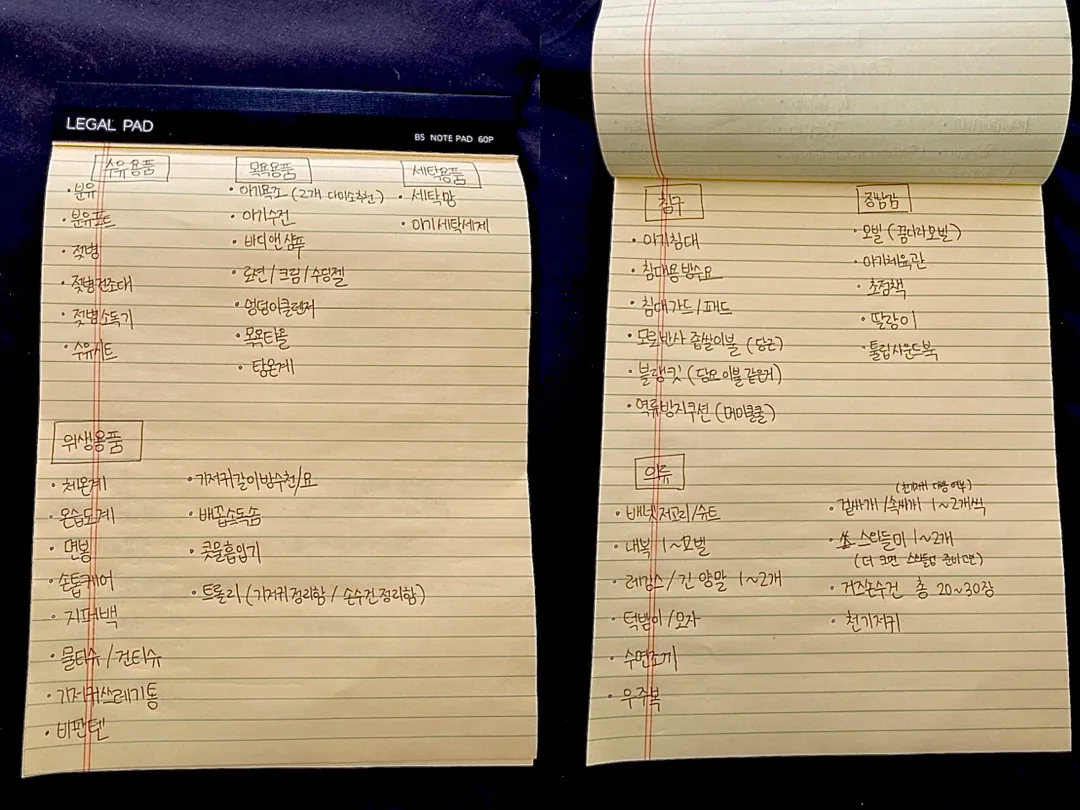 LEGAL PAD
B5 NOTE PAD 60P
수유용품
· 분유
· 분유포트
· 젖병
· 젖병건조대
· 젖병소독기
· 수유시트
목욕용품
· 아기욕조 (2개 다이소추천)
· 아기수전
· 바디앤샴푸
· 로션 / 크림 / 수딩젤
· 엉덩이클렌저
· 목욕타올
· 탕온계
세탁용품
· 세탁망
· 아기세탁세제
위생용품
· 체온계
· 온습도계
· 면봉
· 손톱케어
· 지퍼백
· 물티슈 / 건티슈
· 기저귀쓰레기통
· 비판텐
· 기저귀갈이방수천/요
· 배꼽소독솜
· 콧물흡입기
· 트롤리 (기저귀정리함 / 손수건정리함)
침구
· 아기침대
· 침대용방수요
· 침대가드 / 패드
· 모로반사 좁쌀이불 (당근)
· 블랭킷 (담요이불같은거)
· 역류방지쿠션 (메이쿨쿨)
장난감
· 모빌 (꿈디라모빌)
· 아기체육관
· 초점책
· 딸랑이
· 튤립사운드북
의류
· 배냇저고리/슈트
· 내복 1~2벌
· 레깅스 / 긴 양말 1~2개
· 턱받이 / 모자
· 수면조끼
· 우주복
(천기저귀 대용 여부)
· 겉싸개 / 속싸개 1~2개씩
· 스와들미 1~2개
(더 크면 스와들업 준비)
· 거즈손수건 총 20~30장
· 천기저귀